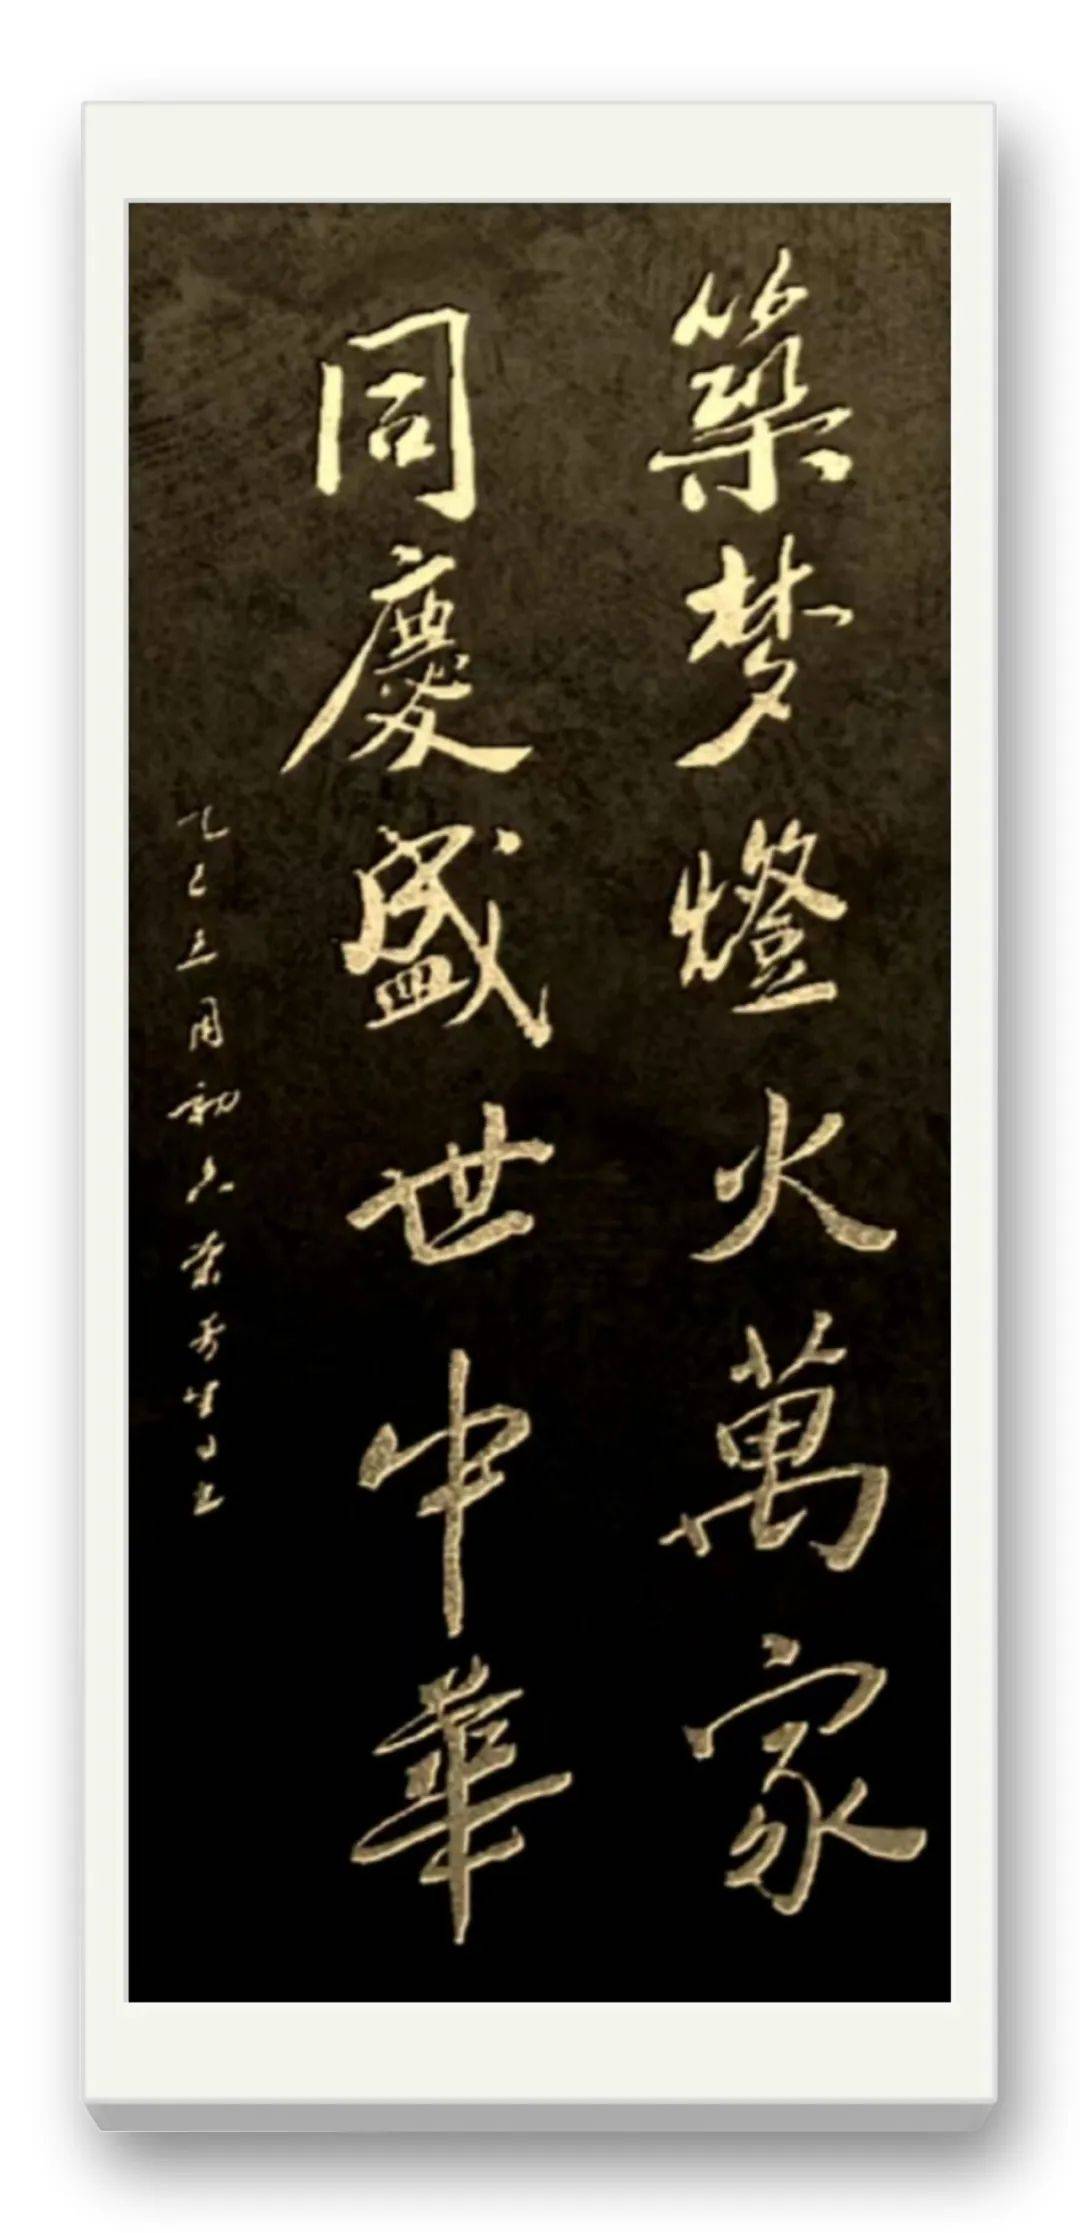 築梦燈火萬家
同慶盛世中華
乙巳五月初六